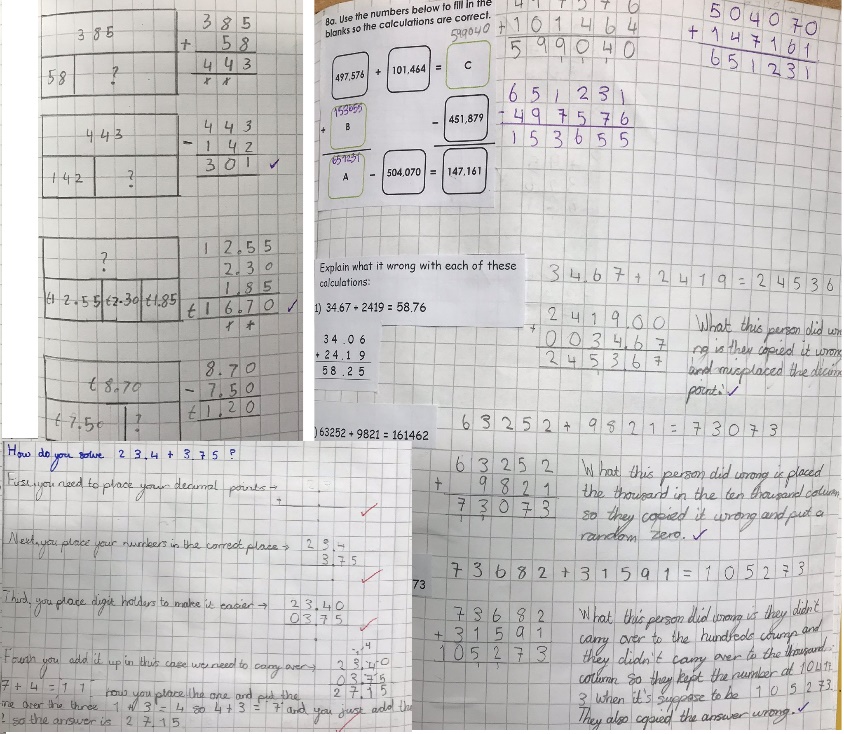 385
58 ?
385
+ 58
443
443
142 ?
443
- 142
301 ✓
?
£12.55 £2.30 £1.85
12.55
2.30
1.85
£16.70 ✓
£8.70
£7.50 ?
8.70
- 7.50
£1.20
8a. Use the numbers below to fill in the
blanks so the calculations are correct.
599040
497,576 + 101,464 = C
153655
+ B - 451,879
651231
A - 504,070 = 147,161
+ 101464
599040
504070
+ 147161
651231
651231
- 497576
153655
Explain what it wrong with each of these
calculations:
1) 34.67 + 2419 = 58.76
34.06
+ 24.19
58.25
34.67 + 2419 = 24536
2419.00
+ 0034.67
245367
What this person did wro
ng is they copied it wrong
and misplaced the decim
point. ✓
) 63252 + 9821 = 161462
63252 + 9821 = 73073
63252
+ 9821
73073
What this person did wrong is placed
the thousand in the ten thousand column
so they copied it wrong and put a
random zero. ✓
73
73682 + 31591 = 105273
73682
+ 31591
105273
What this person did wrong is they didn't
carry over to the hundreds coump and
they didn't carry over to the thousand
column so they kept the number at
3 when it's suppose to be 105273.
They also copied the answer wrong. ✓
How do you solve 23.4 + 3.75 ?
First, you need to place your decimal points →
+
Next, you place your numbers in the correct place → 23.4
3.75
Third, you place digit holders to make it easier → 23.40
03.75
Fourth you add it up in this case we need to carry over →
23.40
03.75
27.15
7 + 4 = 11 how you place the one and put the
ne over the three 1 + 3 = 4 so 4 + 3 = 7 and you just add the
2 so the answer is 27.15